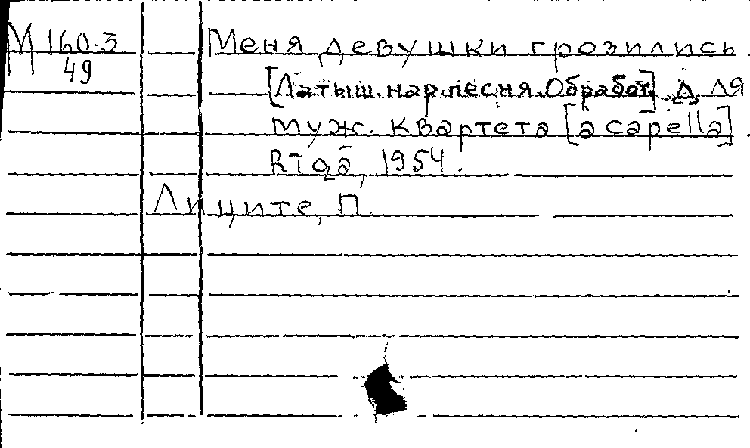 М 160-3
49
Меня девушки грозились.
[Латыш. нар. песня. Обработ.] Для
муж. квартета [a capella].
Rīgā, 1954.
Лиците, П.